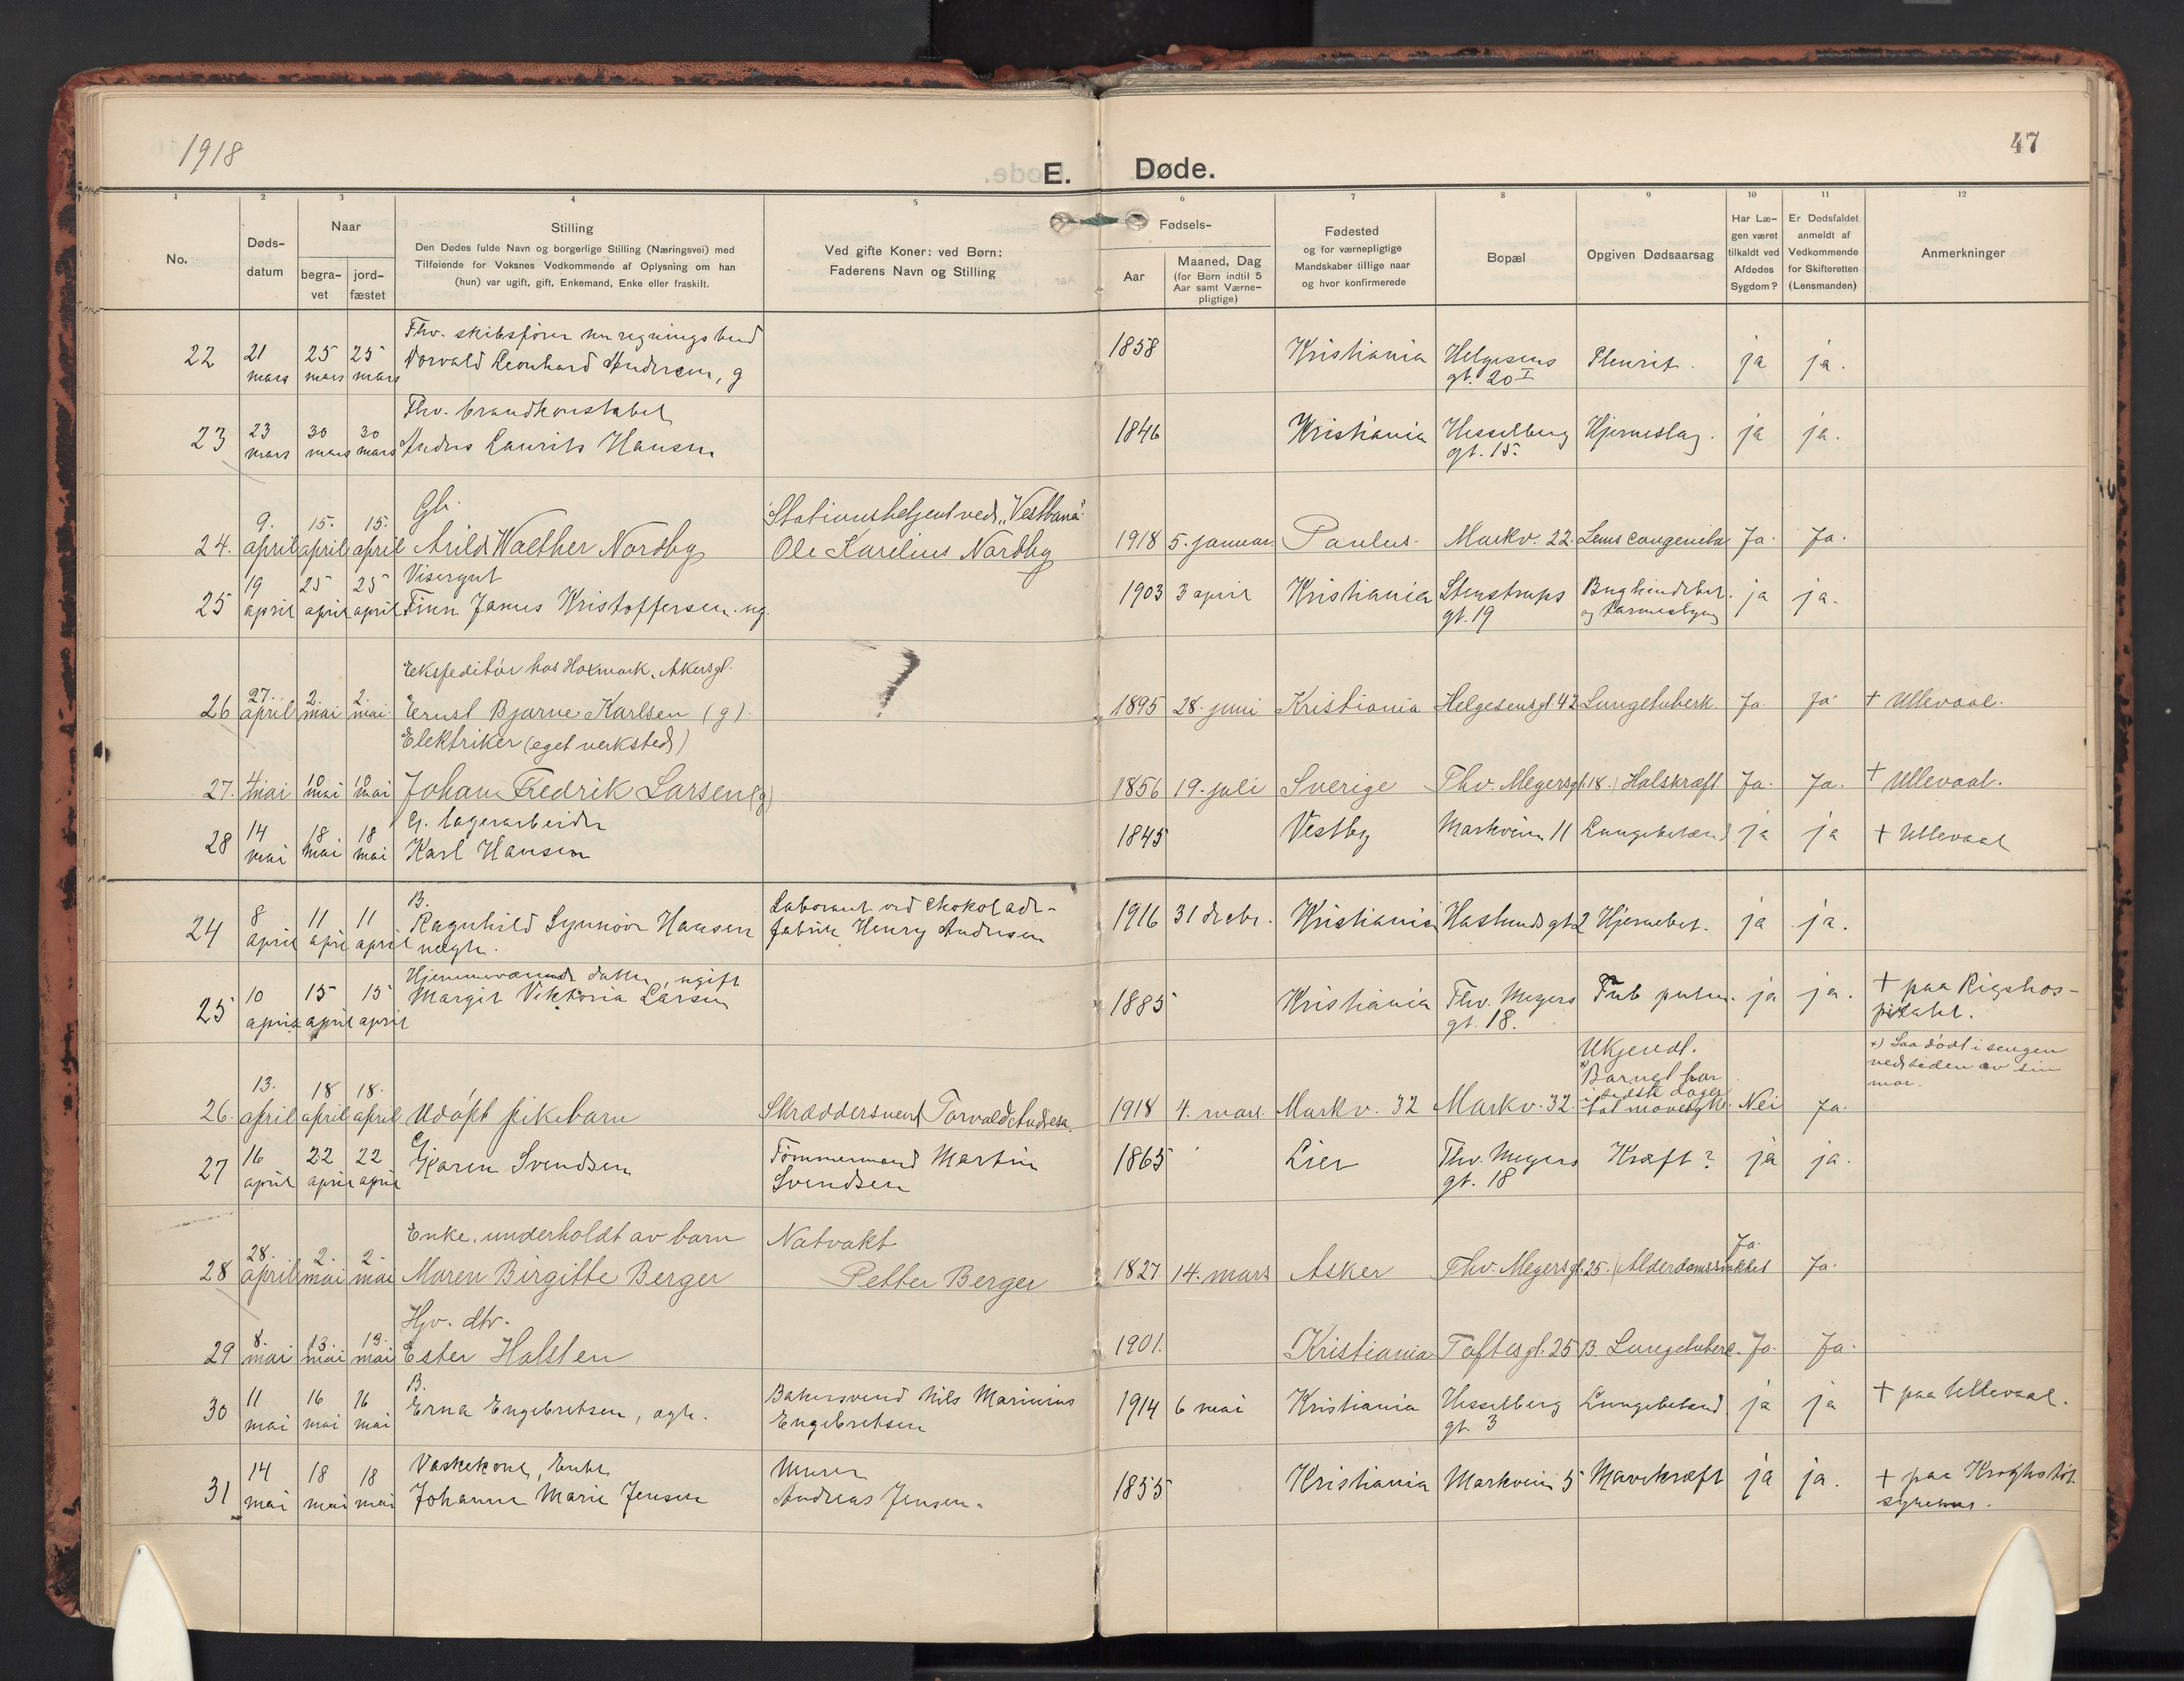 1918
47
E. Døde.
1 2 3 4 5 6 7 8 9 10 11 12
No.
Døds-
datum
Naar
begra-
vet
jord-
fæstet
Stilling
Den Dødes fulde Navn og borgerlige Stilling (Næringsvei) med
Tilføiende for Voksnes Vedkommende af Oplysning om han
(hun) var ugift, gift, Enkemand, Enke eller fraskilt.
Ved gifte Koner: ved Børn:
Faderens Navn og Stilling
Fødsels-
Aar
Maaned, Dag
(for Børn indtil 5
Aar samt Værne-
pligtige)
Fødested
og for værnepligtige
Mandskaber tillige naar
og hvor konfirmerede
Bopæl
Opgiven Dødsaarsag
Har Læ-
gen været
tilkaldt ved
Afdødes
Sygdom?
Er Dødsfaldet
anmeldt af
Vedkommende
for Skifteretten
(Lensmanden)
Anmerkninger
Fhv. skibsfører nu regningsbud
22 21 mars 25 mars 25 mars Torvald Leonhard Andersen, g 1858 Kristiania Helgesens gt. 20 I Pleurit. ja ja.
Fhv. brandkonstabel
23 23 mars 30 mars 30 mars Anders Laurits Hansen 1846 Kristiania Hesselberg gt. 15. Hjerneslag. ja ja.
Gb. Stationsbetjent ved "Vestbana"
24. 9. april 15. april 15. april Arild Walther Nordby Ole Karelius Nordby 1918 5. januar. Paulus. Markv. 22. Lues congenita Ja. Ja.
Visergut
25 19 april 25 april 25 april Finn James Kristoffersen. ug. 1903 3 april Kristiania Stenstrups gt. 19 Bughindebet. og tarmeslyng ja ja.
Ekspeditør hos Hoxmark, Akersgt.
26 27. april 2. mai 2. mai Ernst Bjarne Karlsen (g). 1895 28. juni Kristiania Helgesensgt. 42 Lungetuberk. Ja. Ja + Ullevaal.
Elektriker (eget verksted)
27. 4 mai 10 mai 10 mai Johan Fredrik Larsen (g) 1856 19. juli Sverige Thv. Meyersgt. 18. Halskræft. Ja. Ja. + Ullevaal.
G. lagerarbeider
28 14 mai 18 mai 18 mai Karl Hansen 1845 Vestby Markveien 11 Lungebetænd ja ja + Ullevaal
B. Laborant ved chokolade-
24 8 april 11 april 11 april Ragnhild Synnöve Hansen fabrik Henry Andresen 1916 31 decbr. Kristiania Haslunds gt 2 Hjernebet. ja ja.
uegte.
Hjemmeværende datter, ugift
25 10 april 15 april 15 april Margit Viktoria Larsen 1885 Kristiania Thv. Meyers gt. 18. Tub pulm. ja ja. + paa Rigshos-
pitalet.
Ukjendt. x) Laa dødt i sengen
x) Barnet har ved siden av sin
i sidste dager mor.
26. 13. april 18 april 18. april Udøpt pikebarn Skræddersvend Torvald Andresen. 1918 4. mars. Markv. 32 Markv. 32. hat mavesyk. Nei Ja.
G
27 16 april 22 april 22 april Karen Svendsen Tømmermand Martin Svendsen 1865 Lier Thv. Meyers gt. 18 Kræft? ja ja.
Enke, underholdt av barn Natvakt
28 28. april 2. mai 2. mai Maren Birgitte Berger Petter Berger 1827 14. mars Asker Thv. Meyersgt. 25. Alderdomssvakhet Ja. Ja.
Hjv. dtr.
29 8. mai 13. mai 13. mai Ester Halsten 1901. Kristiania Toftesgt. 25 B. Lungetuberk. Ja. Ja.
B.
30 11 mai 16 mai 16 mai Erna Engebretsen, egte. Bakersvend Nils Marinius Engebretsen 1914 6 mai Kristiania Hesselberg gt. 3 Lungebetænd. ja ja + paa Ullevaal.
Vaskekone, Enke Murer
31 14 mai 18 mai 18 mai Johanne Marie Jensen Andreas Jensen. 1855 Kristiania Markveien 5 Mavekræft ja ja. + paa Kroghstøt.
sykehus.